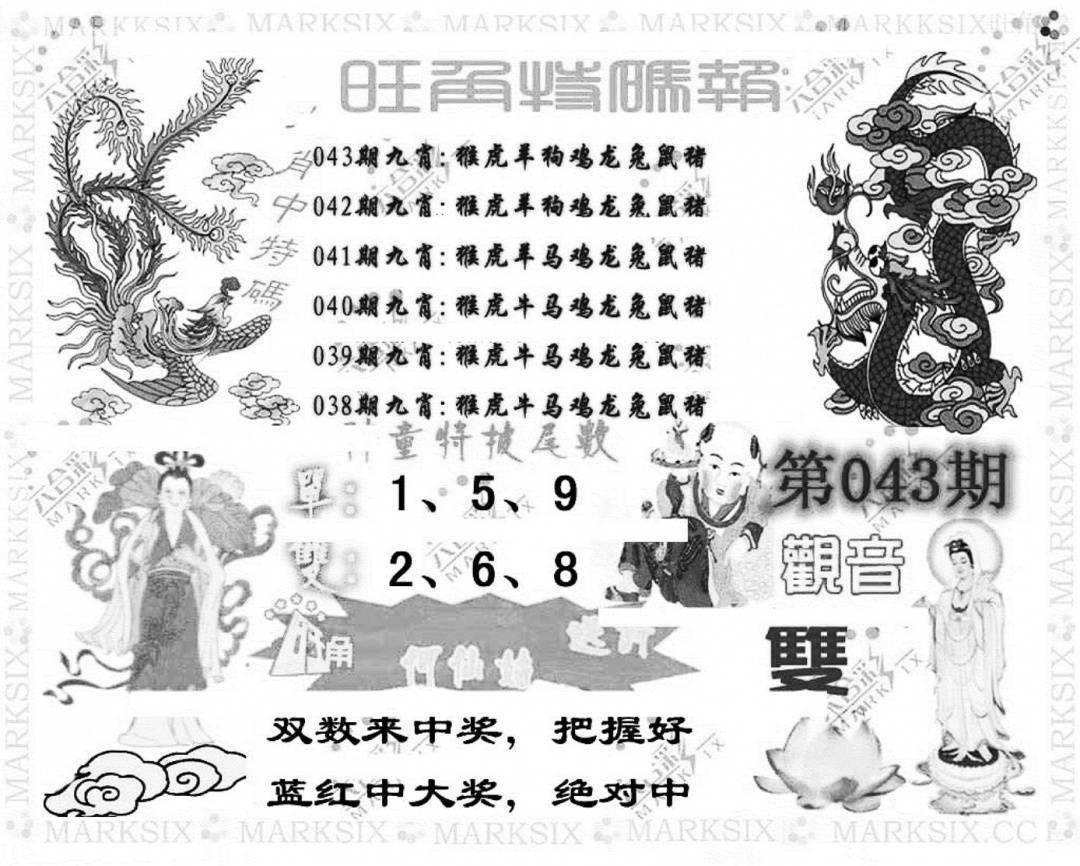 MARKSIX MARKSIX MARKSIX MARKSIX MARKKSIX
旺角特碼報
肖中特碼
043期九肖:猴虎羊狗鸡龙兔鼠猪
042期九肖:猴虎羊狗鸡龙兔鼠猪
041期九肖:猴虎羊马鸡龙兔鼠猪
040期九肖:猴虎牛马鸡龙兔鼠猪
039期九肖:猴虎牛马鸡龙兔鼠猪
038期九肖:猴虎牛马鸡龙兔鼠猪
童特披尾數
單:1、5、9
雙:2、6、8
第043期
觀音
雙
何仙姑
双数来中奖，把握好
蓝红中大奖，绝对中
MARKSIX MARKSIX MARKSIX MARKSIX MARKSIX.CC